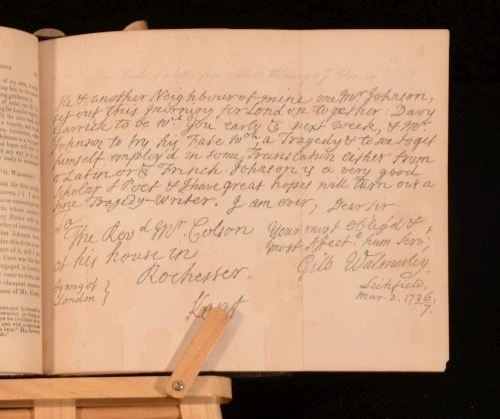 He & another Neighbour of mine one Mr Johnson,
set out this morning for London together: Davy
Garrick to be wth you early ye next week, & Mr
Johnson to try his Fate wth a Tragedy & to see to get
himself employ'd in some Translation either from
ye Latin or ye French. Johnson is a very good
Scholar & Poet & I have great hopes will turn out a
fine Tragedy-Writer. I am ever, Dear Sir
To
The Revd Mr Colson
at his house in
Rochester.
Kent
By way of
London
Your most oblig'd &
most affect: hum Serv,
Gilb Walmesley.
Lichfield,
Mar. 2. 1736/7.